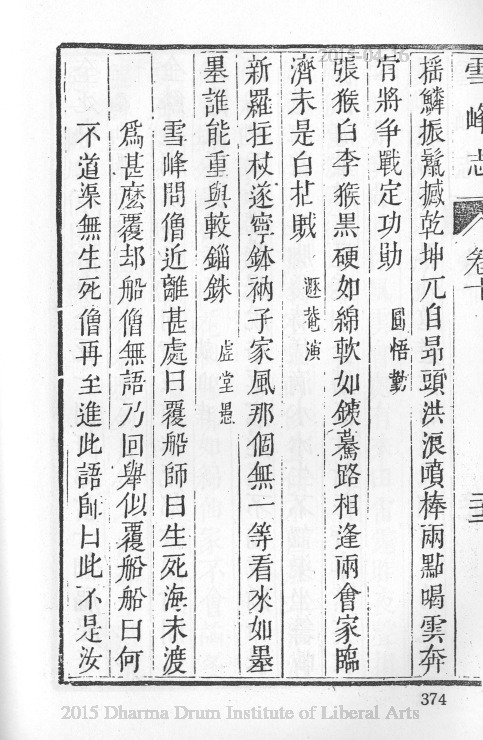 雪峰志 卷十
搖鱗振鬣撼乾坤兀自昻頭洪浪噴棒兩點喝雲奔
肯將爭戰定功勛 圜悟勤
張猴白李猴黑硬如綿軟如鐵驀路相逢兩會家臨
濟未是白拈賊 遯菴演
新羅拄杖遂寧鉢衲子家風那個無一等看來如墨
墨誰能重與較錙銖 虛堂愚
雪峰問僧近離甚處曰覆船師曰生死海未渡
爲甚麽覆却船僧無語乃回舉似覆船船曰何
不道渠無生死僧再至進此語師曰此不是汝
374
2015 Dharma Drum Institute of Liberal Arts